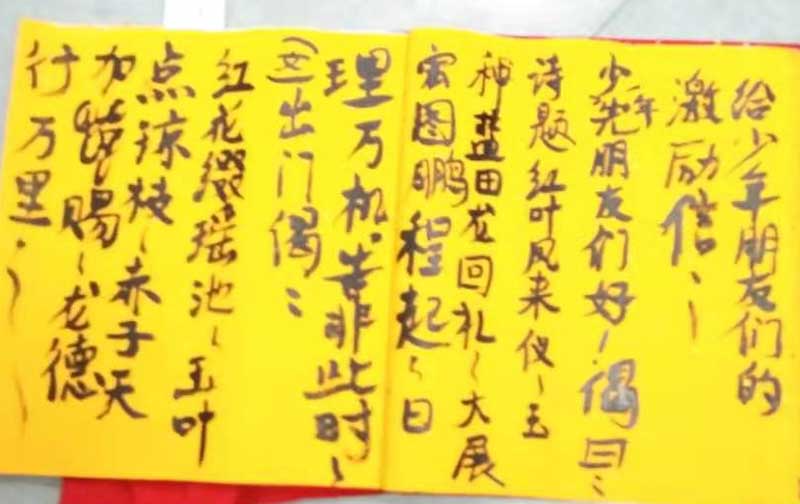 给少年朋友们的
激励信：
少年先朋友们好！偶曰：
诗题红叶风来仪、玉
神蓝田龙回礼、大展
宏图鹏程起、日
理万机岂非此时、
出门偶：
红花缀瑶池、玉叶
点琼枝、赤子天
加赐、龙德
行万里.